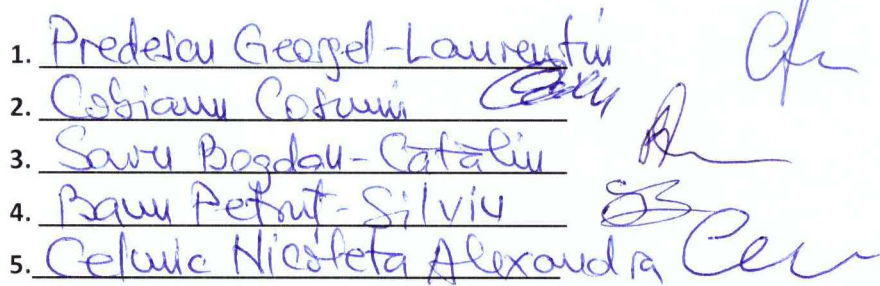 1. Predescu Georgel-Laurențiu
2. Cosmin
3. Savu Bogdan-Cătălin
4. Petruț-Silviu
5. Nicoleta Alexandra